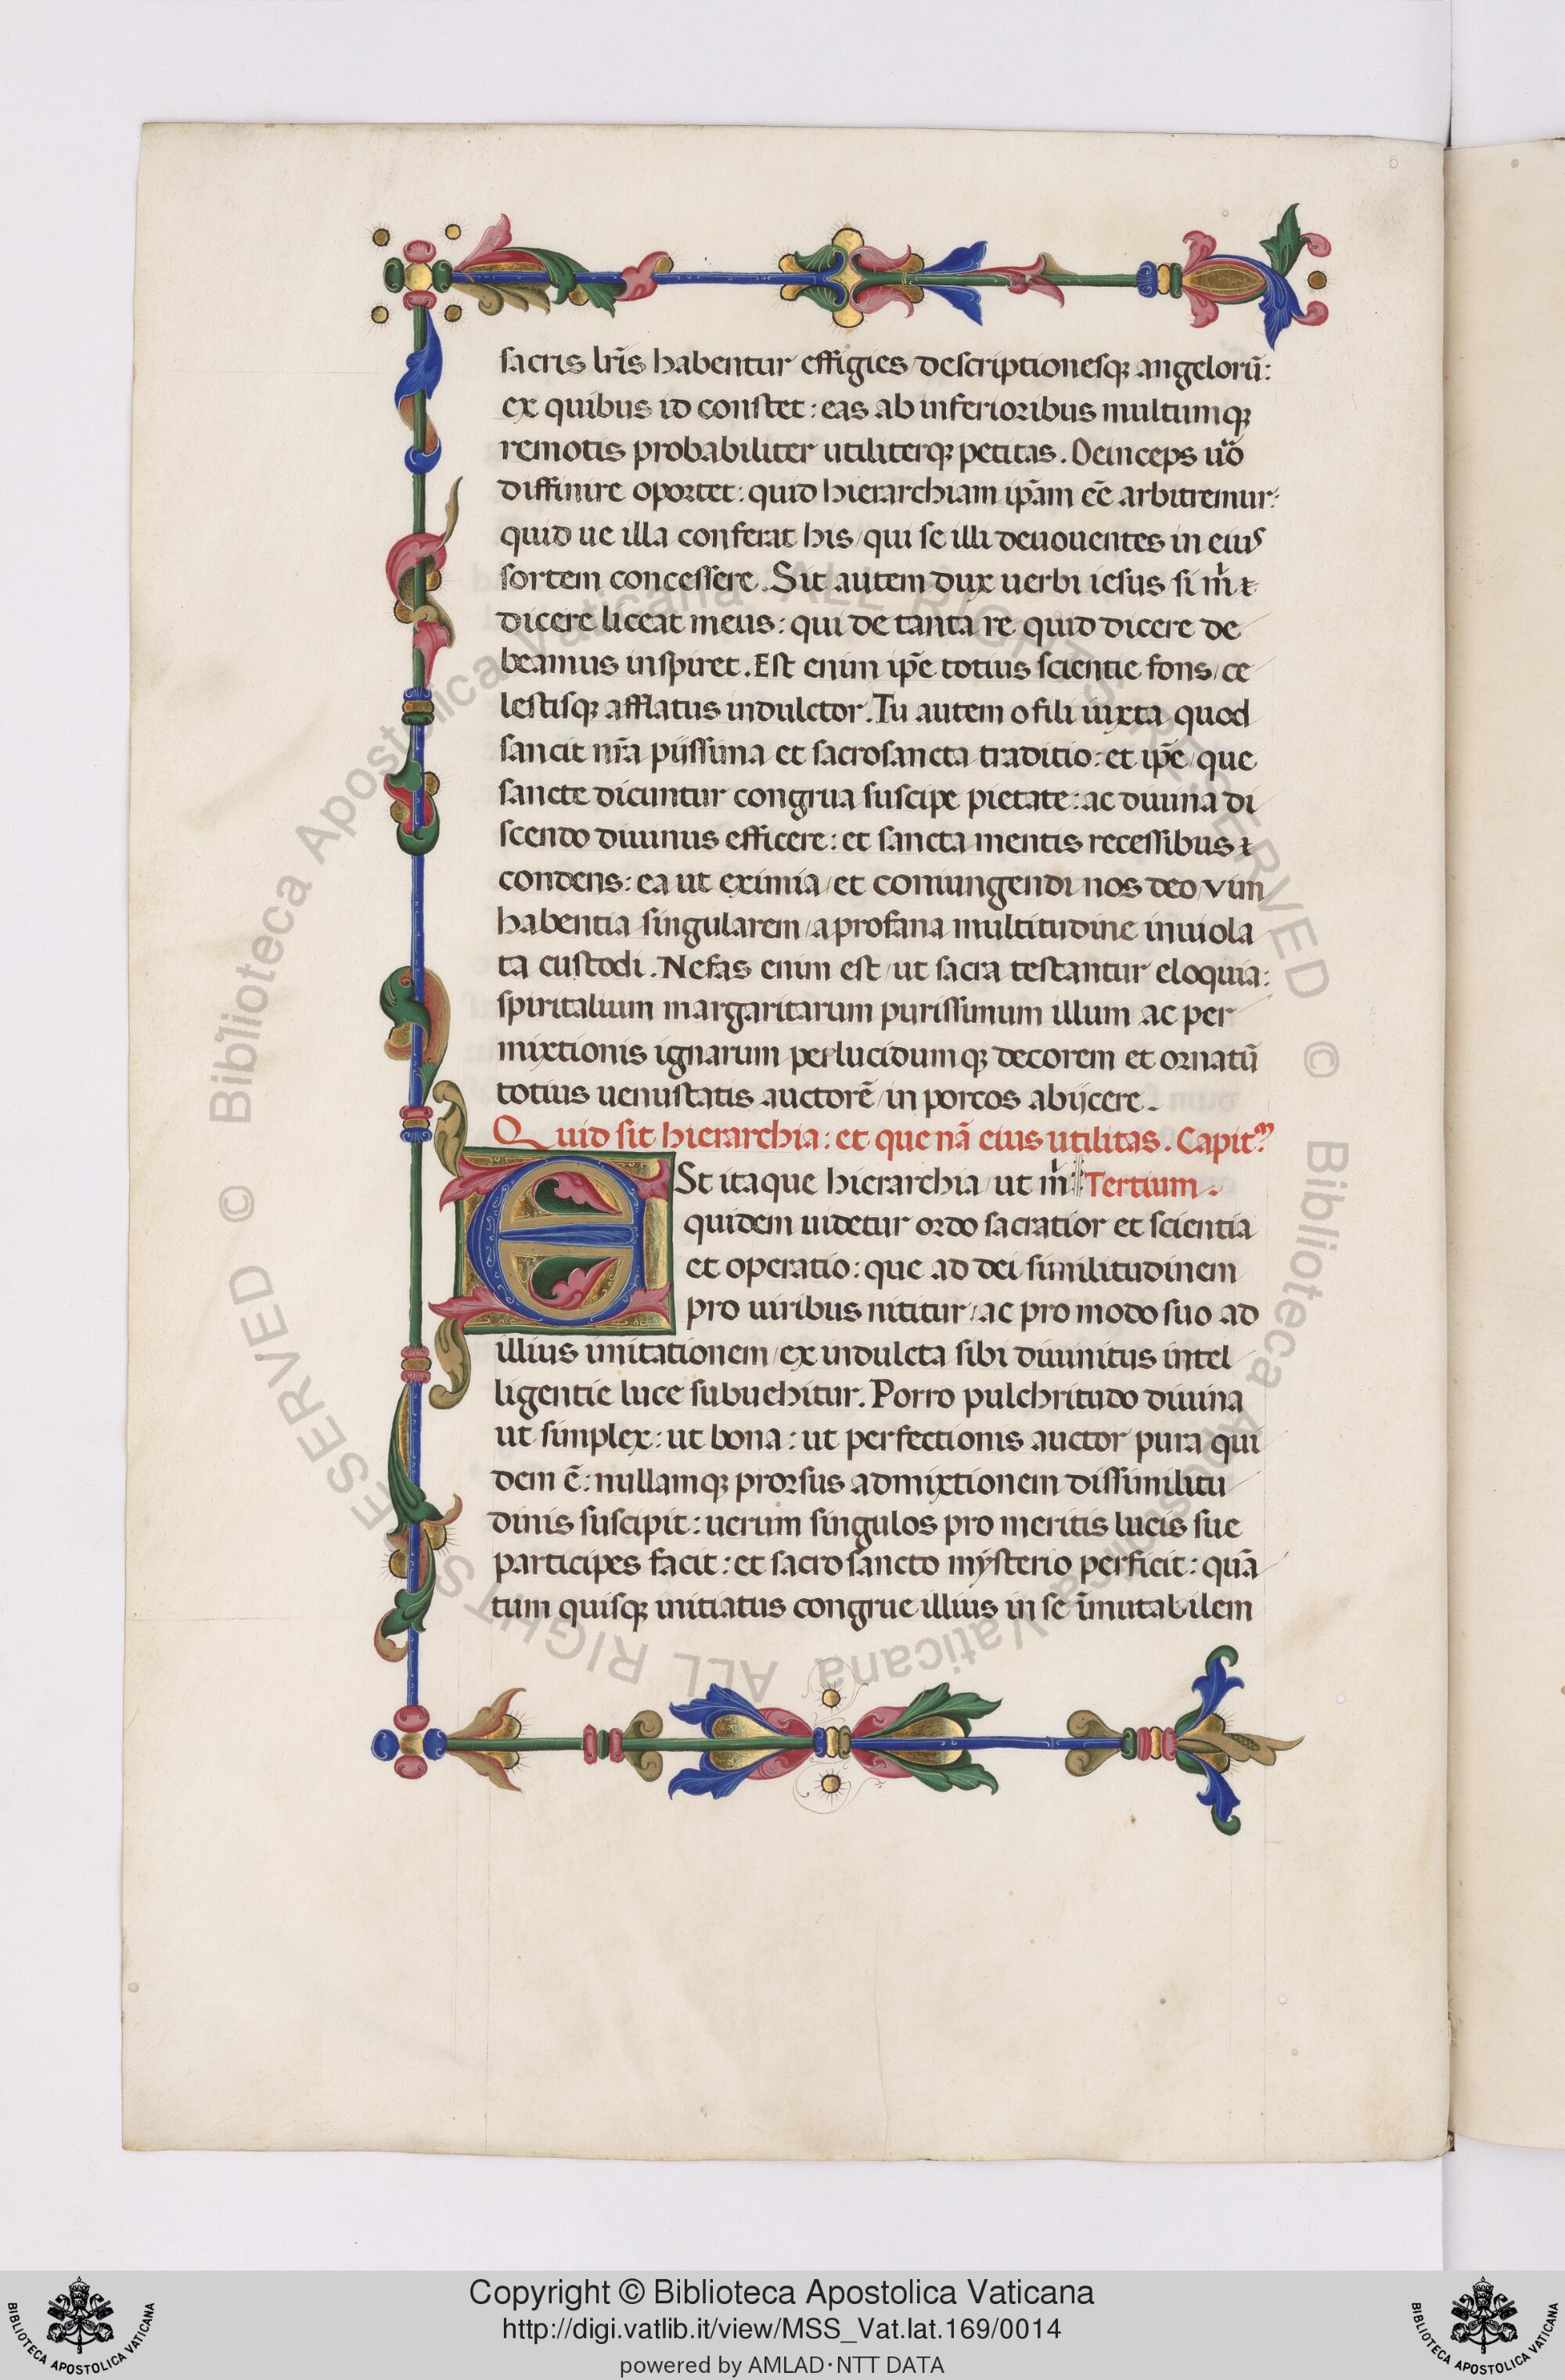 sacris lr̃is habentur effigies descriptionesq; angelorũ:
ex quibus id constet: eas ab inferioribus multumq;
remotis probabiliter utiliterq; petitas. Deinceps uõ
diffinire oportet: quid hierarchiam ip̃am eẽ arbitremur:
quid ue illa conferat his/ qui se illi deuouentes in eius
sortem concessere. Sit autem dux uerbi iesus si m̃ &
dicere liceat meus: qui de tanta re quid dicere de
beamus inspiret. Est enim ip̃e totius scientie fons/ ce
lestisq; afflatus indultor. Tu autem o fili iuxta quod
sancit nr̃a pijssima et sacrosancta traditio: et ip̃e/ que
sancte dicuntur congrua suscipe pietate: ac diuina di
scendo diuinus efficere: et sancta mentis recessibus &
condens: ea ut eximia/ et coniungendi nos deo/ vim
habentia singularem/ a profana multitudine inuiola
ta custodi. Nefas enim est/ ut sacra testantur eloquia:
spiritalium margaritarum purissimum illum ac per
mixtionis ignarum perlucidumq; decorem et ornatũ
totius uenustatis auctorẽ/ in porcos abijcere.
Quid sit hierarchia: et que nã eius utilitas. Capitm̃
ESt itaque hierarchia/ ut m̃ Tertium.
quidem uidetur ordo sacratior et scientia
et operatio: que ad dei similitudinem
pro uiribus nititur/ ac pro modo suo ad
illius imitationem/ ex indulta sibi diuinitus intel
ligentie luce subuehitur. Porro pulchritudo diuina
ut simplex: ut bona: ut perfectionis auctor pura qui
dem ẽ: nullamq; prorsus admixtionem dissimilitu
dinis suscipit: uerum singulos pro meritis lucis sue
participes facit: et sacro sancto mysterio perficit: quã
tum quisq; initiatus congrue illius in se ĩmutabilem
Copyright © Biblioteca Apostolica Vaticana
http://digi.vatlib.it/view/MSS_Vat.lat.169/0014
powered by AMLAD·NTT DATA
BIBLIOTECA APOSTOLICA VATICANA
BIBLIOTECA APOSTOLICA VATICANA
© Biblioteca Apostolica Vaticana ALL RIGHTS RESERVED
© Biblioteca Apostolica Vaticana ALL RIGHTS RESERVED